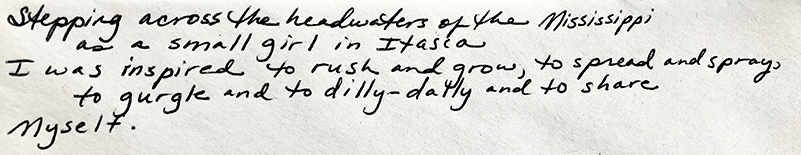 Stepping across the headwaters of the Mississippi
as a small girl in Itasca
I was inspired to rush and grow, to spread and spray,
to gurgle and to dilly-dally and to share
Myself.